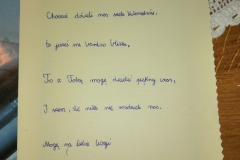 Chociaż dzieli nas wiele kilometrów,
to jesteś mi bardzo bliska,
To z Tobą mogę dzielić piękny czas,
I wiem, że nikt nie rozdzieli nas.
Mogę na Ciebie liczyć